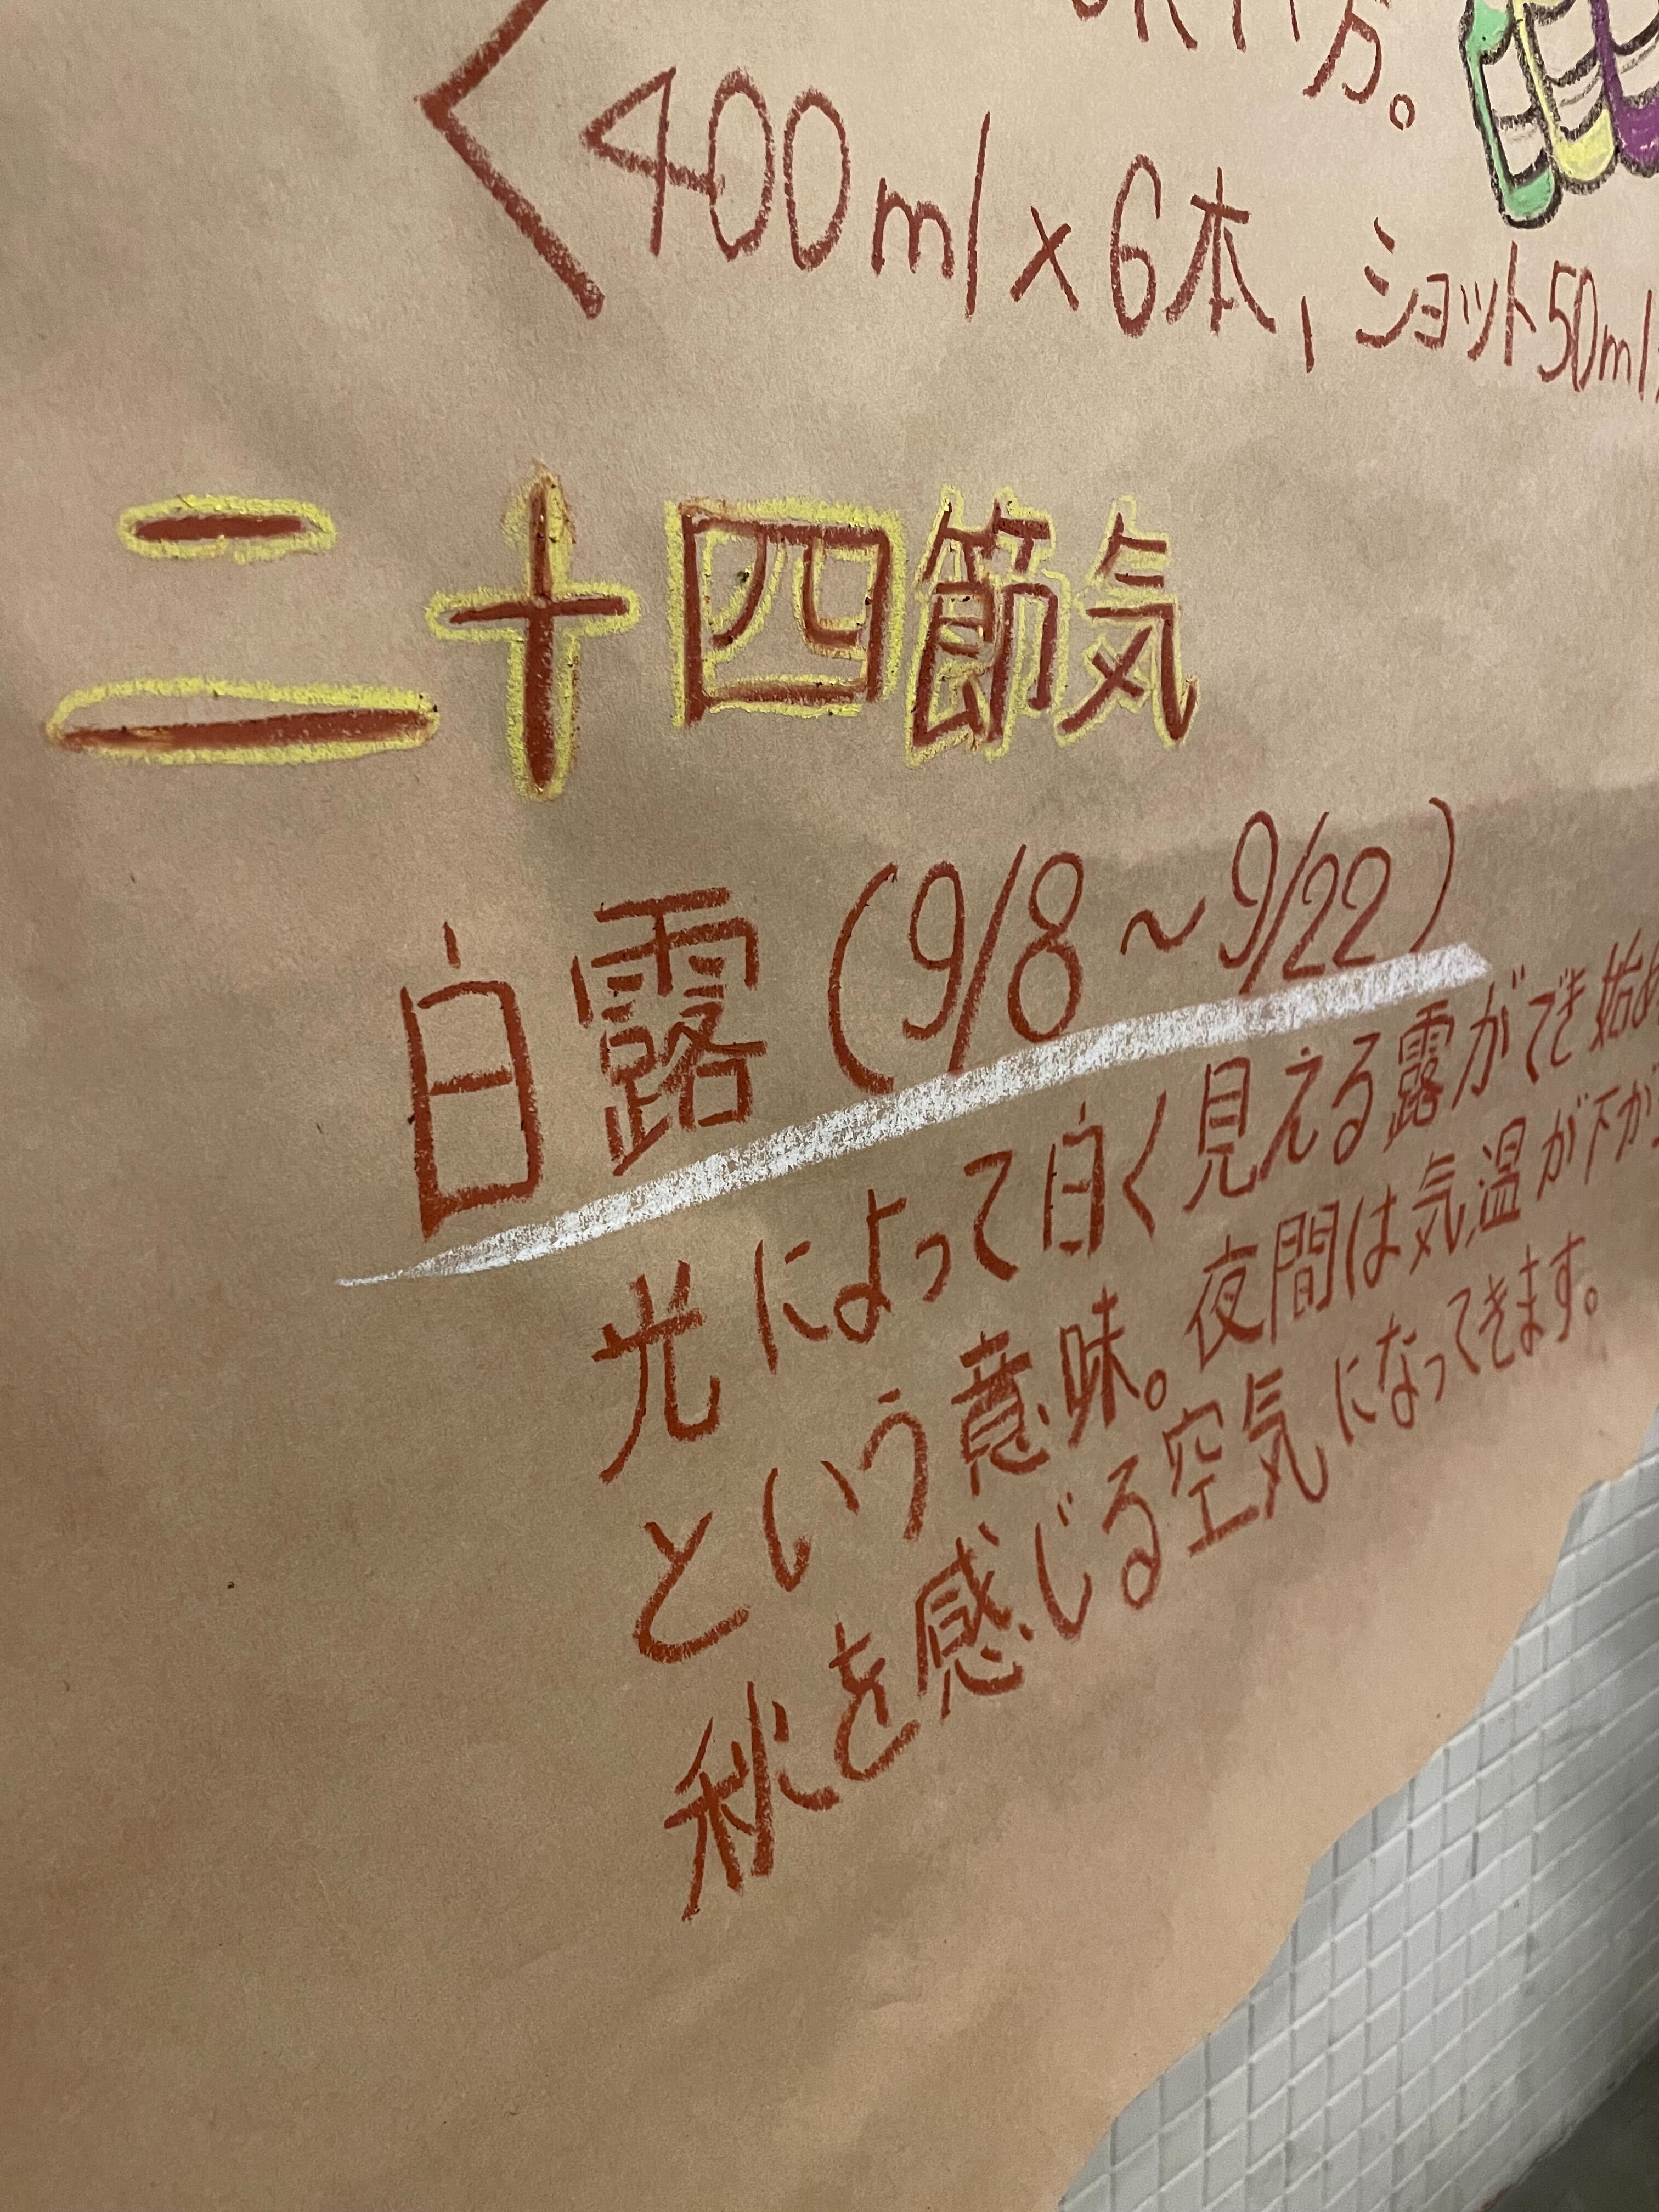 方。
400ml×6本，ショット50ml
二十四節気
白露(9/8～9/22)
光によって白く見える露ができ始め
という意味。夜間は気温が下が
秋を感じる空気になってきます。